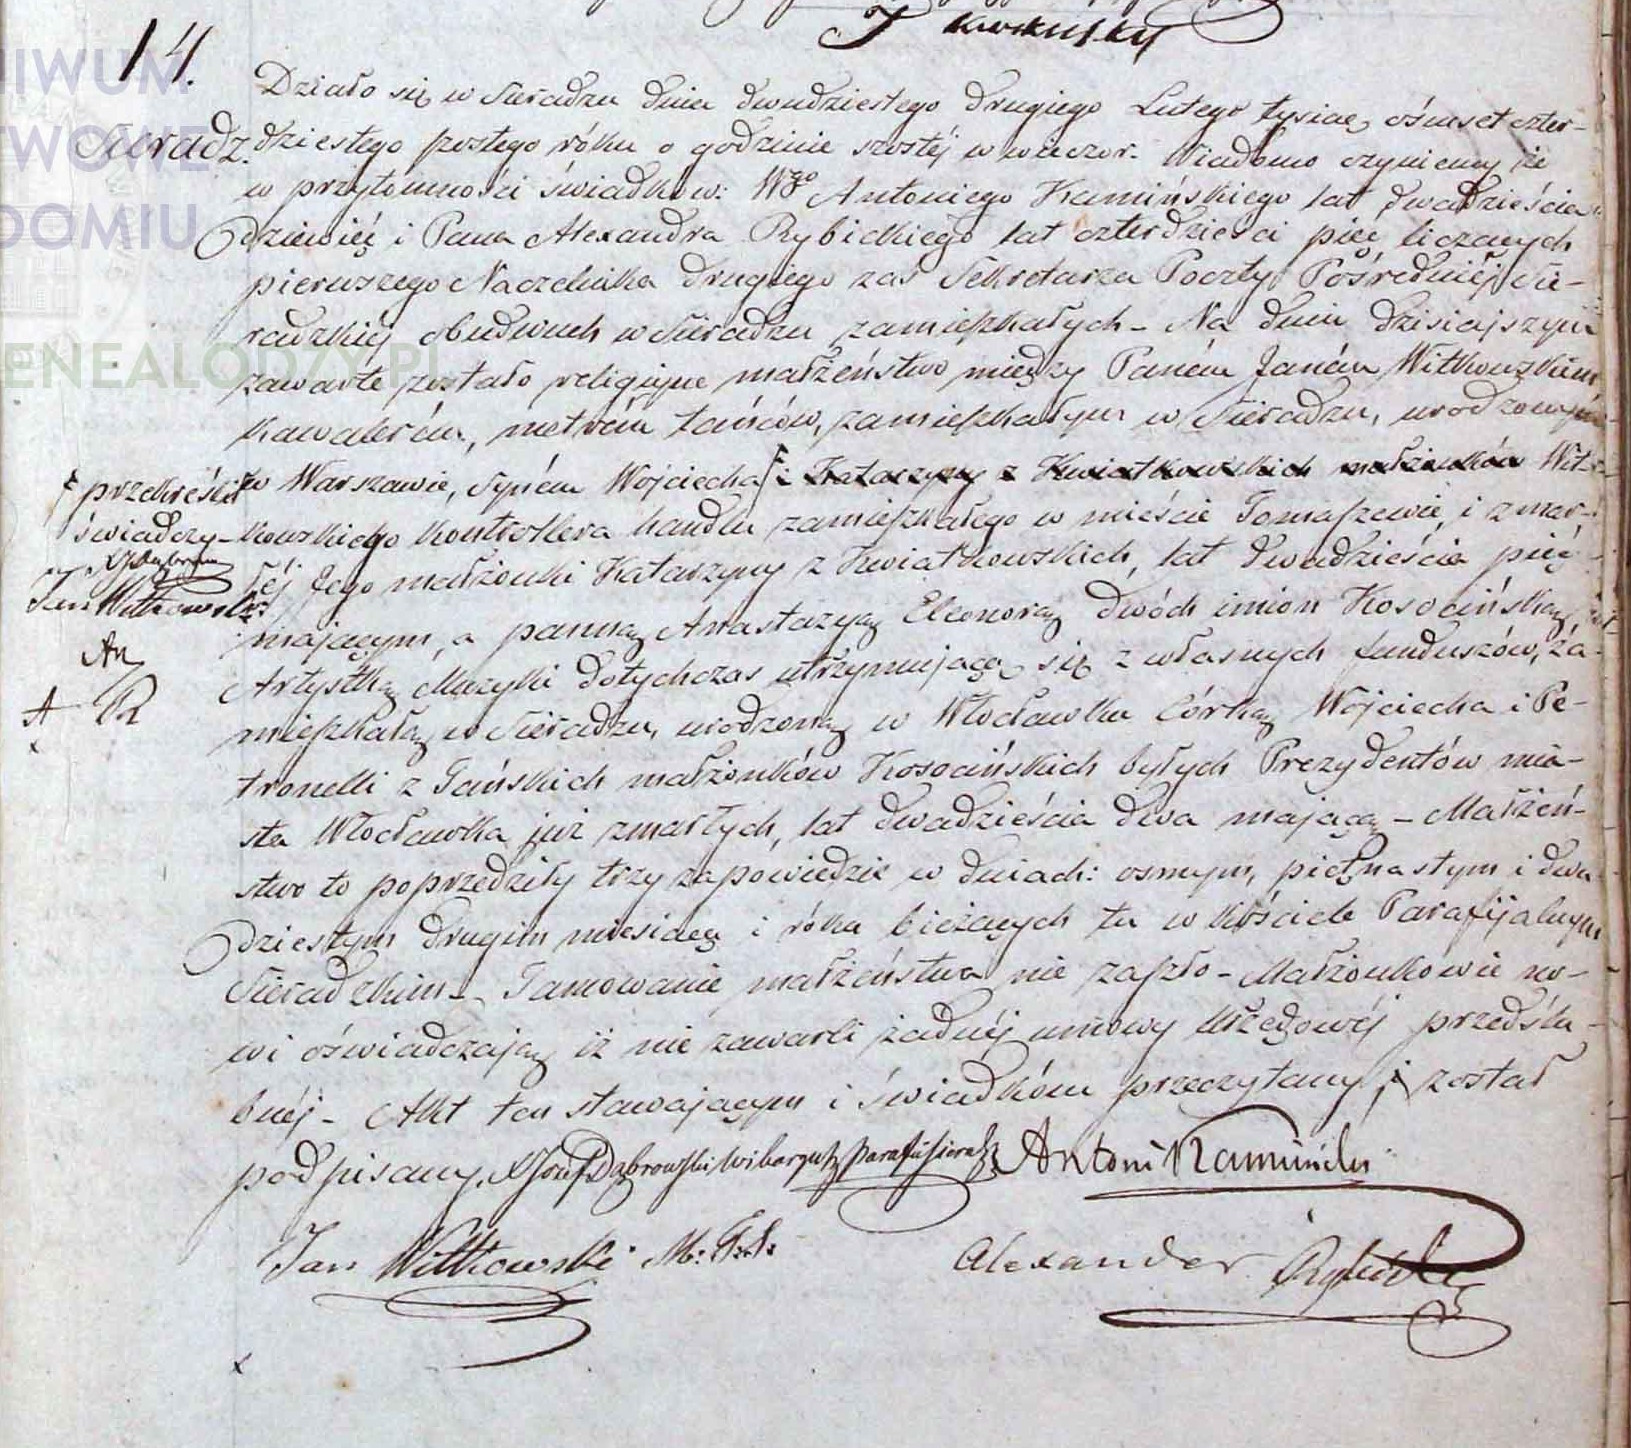 14.
Sieradz.
Działo się w Sieradzu dnia dwudziestego drugiego Lutego tysiąc ośmset czter-
dziestego szostego róku o godzinie szostéj w wieczor. Wiadomo czyniemy iż
w przytomności świadków: Wgo Antoniego Kamińskiego lat dwadzieścia
dziewięć i Pana Alexandra Rybickiego lat czterdzieści pięć liczących
pierwszego Naczelnika drugiego zaś Sekretarza Poczty Pośredniéj Sie-
radzkiéj obudwuch w Sieradzu zamieszkałych – Na dniu dzisiajszym
zawarte zostało religijne małżeństwo między Panem Janem Witkowskim
Kawalerem, metrem tańców, zamieszkałym w Sieradzu, urodzonym
w Warszawie, Synem Wojciecha i Katarzyny z Kwiatkowskich małżonków Wit-
kowskiego kontrollera handlu zamieszkałego w mieście Tomaszewie, i zmar-
łéj Jego małżonki Katarzyny z Kwiatkowskich, lat dwadzieścia pięć
mającym, a panną Anastazyą Eleonorą dwóch imion Kosocińską,
Artystką Muzyki dotychczas utrzymującą się z własnych funduszów, za-
mieszkałą w Sieradzu, urodzoną w Włocławku Córką Wojciecha i Pe-
tronelli z Tańskich małżonków Kosocińskich byłych Prezydentów mia-
sta Włocławka już zmarłych, lat dwadzieścia dwa mającą – Małżeń-
stwo to poprzedziły trzy zapowiedzie w dniach: osmym, piętnastym i dwu-
dziestym drugim miesiąca i róku bieżących tu w Kościele Parafijalnym
Sieradzkim – Tamowanie małżeństwa nie zaszło – Małżonkowie no-
wi oświadczają iż nie zawarli żadnéj umowy Urzędowéj przedślu-
bnéj – Akt ten stawającym i świadkóm przeczytany i został
podpisany. X Józef Dąbrowski Wikaryusz Parafii Sieradz Antoni Kamiński
Jan Witkowski M: T.
Alexander Rybicki
przekreślenie
świadczy
Jan Witkowski
AK
A R
ENEALODZY.PL